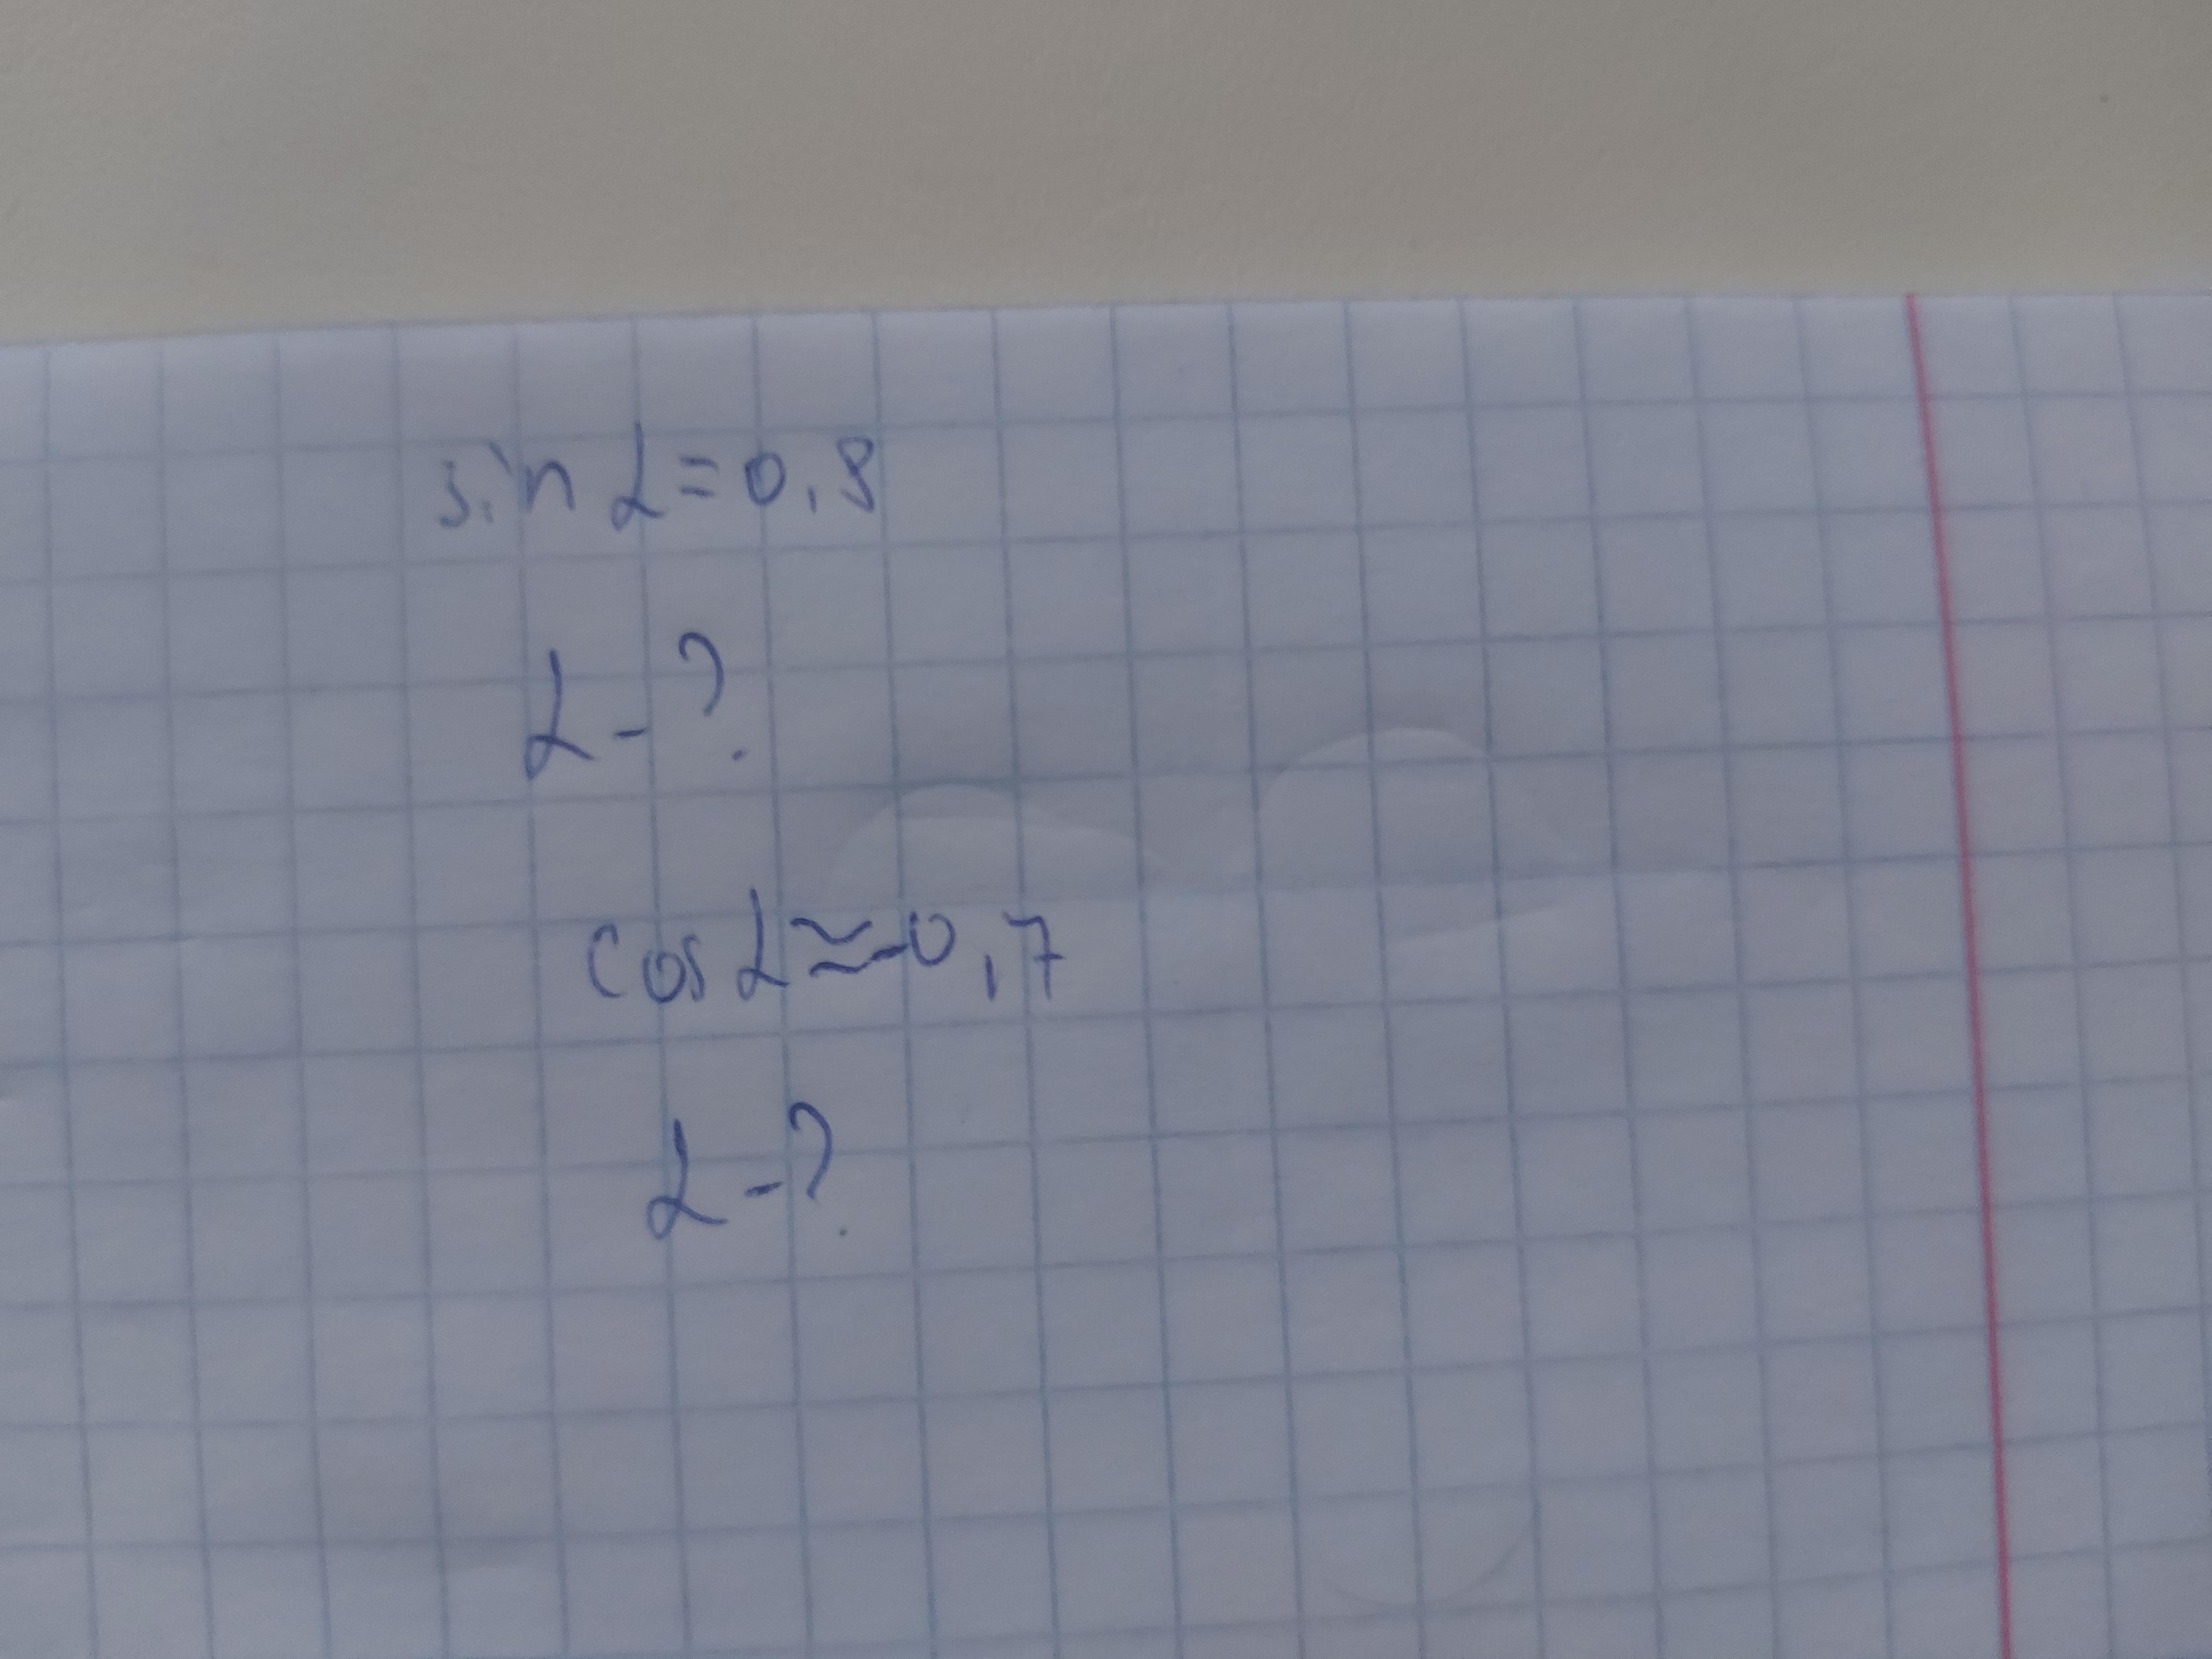 sin α = 0,8
α - ?
cos α ≈ -0,7
α - ?